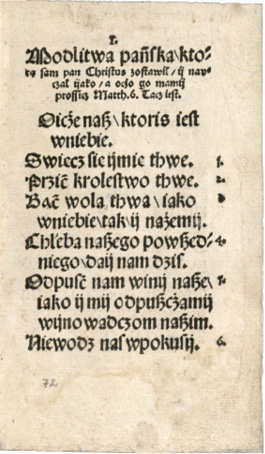 1.
Modlitwa pańska\kto-
rą sam pan Christus zostawił/ ij nau-
czał ijako/a oczo go mamij
prossicz Matth.6. Tacz iest.
Oicże nasz\ktoris iest
wniebie.
Swiecz sie ijmie thwe. 1.
Przić krolestwo thwe. 2.
Bać wola thwa\iako
wniebie\tak\ij nażemij.
Chleba naszego powszed- 4.
niego\daij nam dzis.
Odpusć nam winij nasze\ 5.
iako ij mij odpuszczamij
wijnowadczom naszim.
Niewodz nas wpokusij. 6.
72